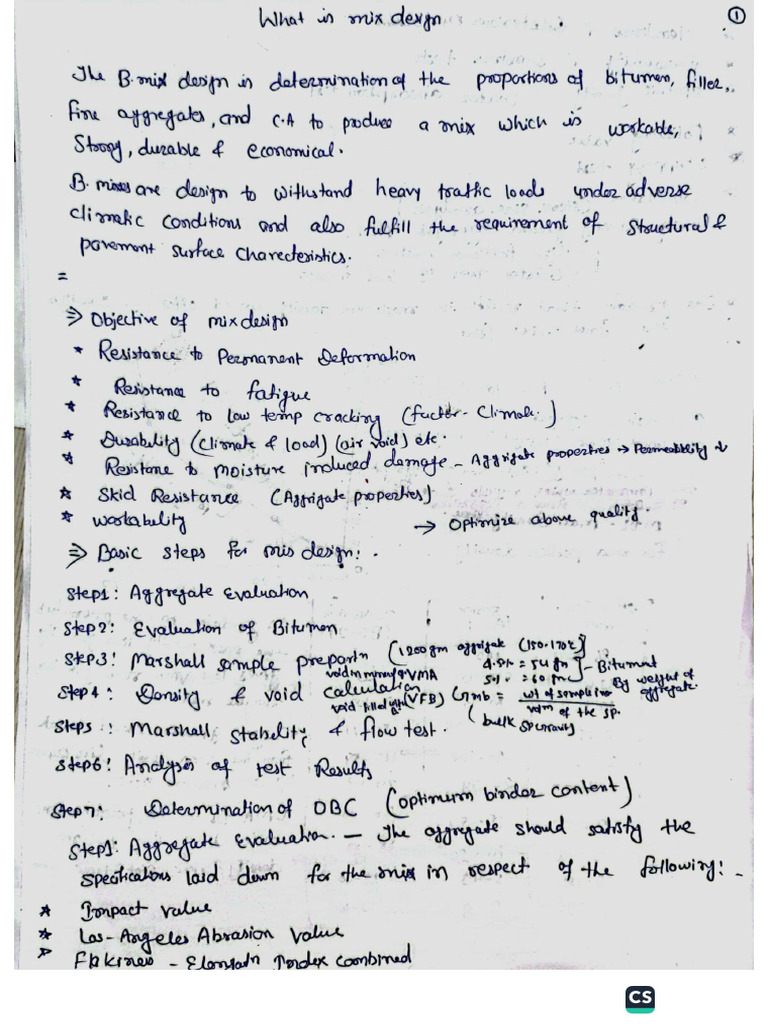 What is mix design
1
The B.mix design is determination of the proportions of bitumen, filler,
fine aggregates, and C.A to produce a mix which is workable,
Strong, durable & economical.
B. mixes are design to withstand heavy traffic loads under adverse
climatic conditions and also fulfill the requirement of Structural &
pavement surface charecteristics.
=
⇒ Objective of mix design
* Resistance to Permanent Deformation
* Resistance to fatigue
* Resistance to Low temp cracking (factor - Climate.)
* Durability (climate & load) (air void) etc.
* Resistane to moisture induced damage - Aggrigate properties → Permeability ↓
* Skid Resistance (Aggrigate properties)
* Workability → Optimize above quality.
⇒ Basic steps for mis design:.
Step1: Aggregate Evaluation
Step2: Evaluation of Bitumen
Step3: Marshall sample preportn (1200gm aggrigate (150-170c)
4.5% = 54 gm
5% = 60 gm - Bitumant
By weight of aggregate.
void in mineral VMA
Step4: Density & void calculation
void filled with B. (VFB) Gmb = wt of sample in
volm of the sp.
(bulk SP Gravity)
Step5: Marshall stability & flow test.
Step6: Analysis of test Results
Step7: Determination of OBC (optimum binder content)
Step1: Aggregate Evaluation. — The aggregate should satisfy the
Specifications laid down for the mix in respect of the following:-
* Impact value
* Los-Angeles Abrasion Value
* Flakines - Elongatn Index combined
CS